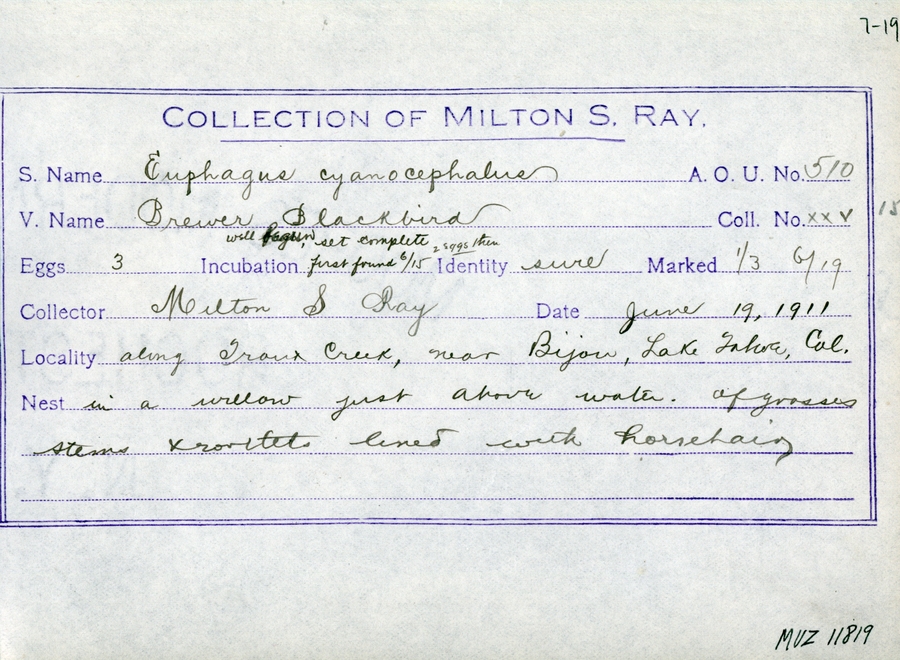 7-19
COLLECTION OF MILTON S. RAY.
S. Name Euphagus cyanocephalus A. O. U. No. 510
V. Name Brewer Blackbird Coll. No. XXV 15
well begun, set complete 2 eggs then
Eggs 3 Incubation first found 6/15 Identity sure Marked 1/3 6/19
Collector Milton S Ray Date June 19, 1911
Locality along Traux Creek, near Bijou, Lake Tahoe, Cal.
Nest in a willow just above water. of grasses
stems & rootlets lined with horsehair
MVZ 11819